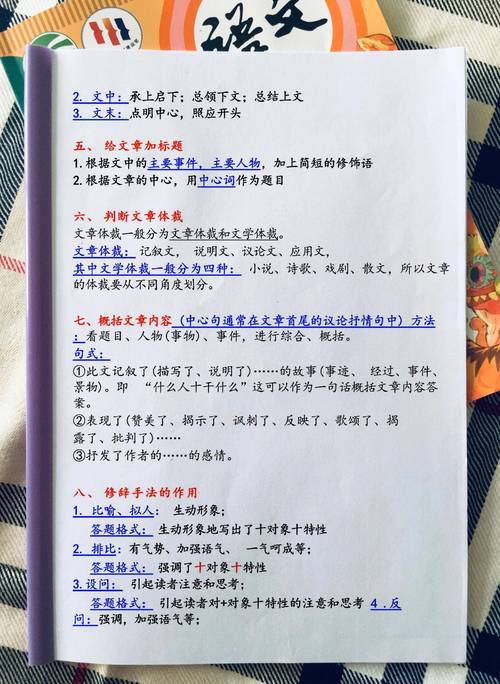 语文
2. 文中：承上启下；总领下文；总结上文
3. 文末：点明中心，照应开头
五、 给文章加标题
1.根据文中的主要事件，主要人物，加上简短的修饰语
2.根据文章的中心，用中心词作为题目
六、 判断文章体裁
文章体裁一般分为文章体裁和文学体裁。
文章体裁： 记叙文， 说明文、议论文、应用文，
其中文学体裁一般分为四种： 小说、诗歌、戏剧、散文，所以文章
的体裁要从不同角度划分。
七、概括文章内容（中心句通常在文章首尾的议论抒情句中）方法
：看题目、人物(事物)、事件，进行综合、概括。
句式：
①此文记叙了(描写了、说明了)……的故事(事迹、 经过、事件、
景物)。即 “什么人十干什么”这可以作为一句话概括文章内容答
案。
②表现了(赞美了、揭示了、讽刺了、反映了、歌颂了、揭
露了、批判了)……
③抒发了作者的……的感情。
八、 修辞手法的作用
1. 比喻、拟人： 生动形象；
答题格式： 生动形象地写出了十对象十特性
2. 排比：有气势、加强语气、 一气呵成等；
答题格式： 强调了十对象十特性
3.设问： 引起读者注意和思考；
答题格式： 引起读者对+对象十特性的注意和思考 4 .反
问：强调，加强语气等；